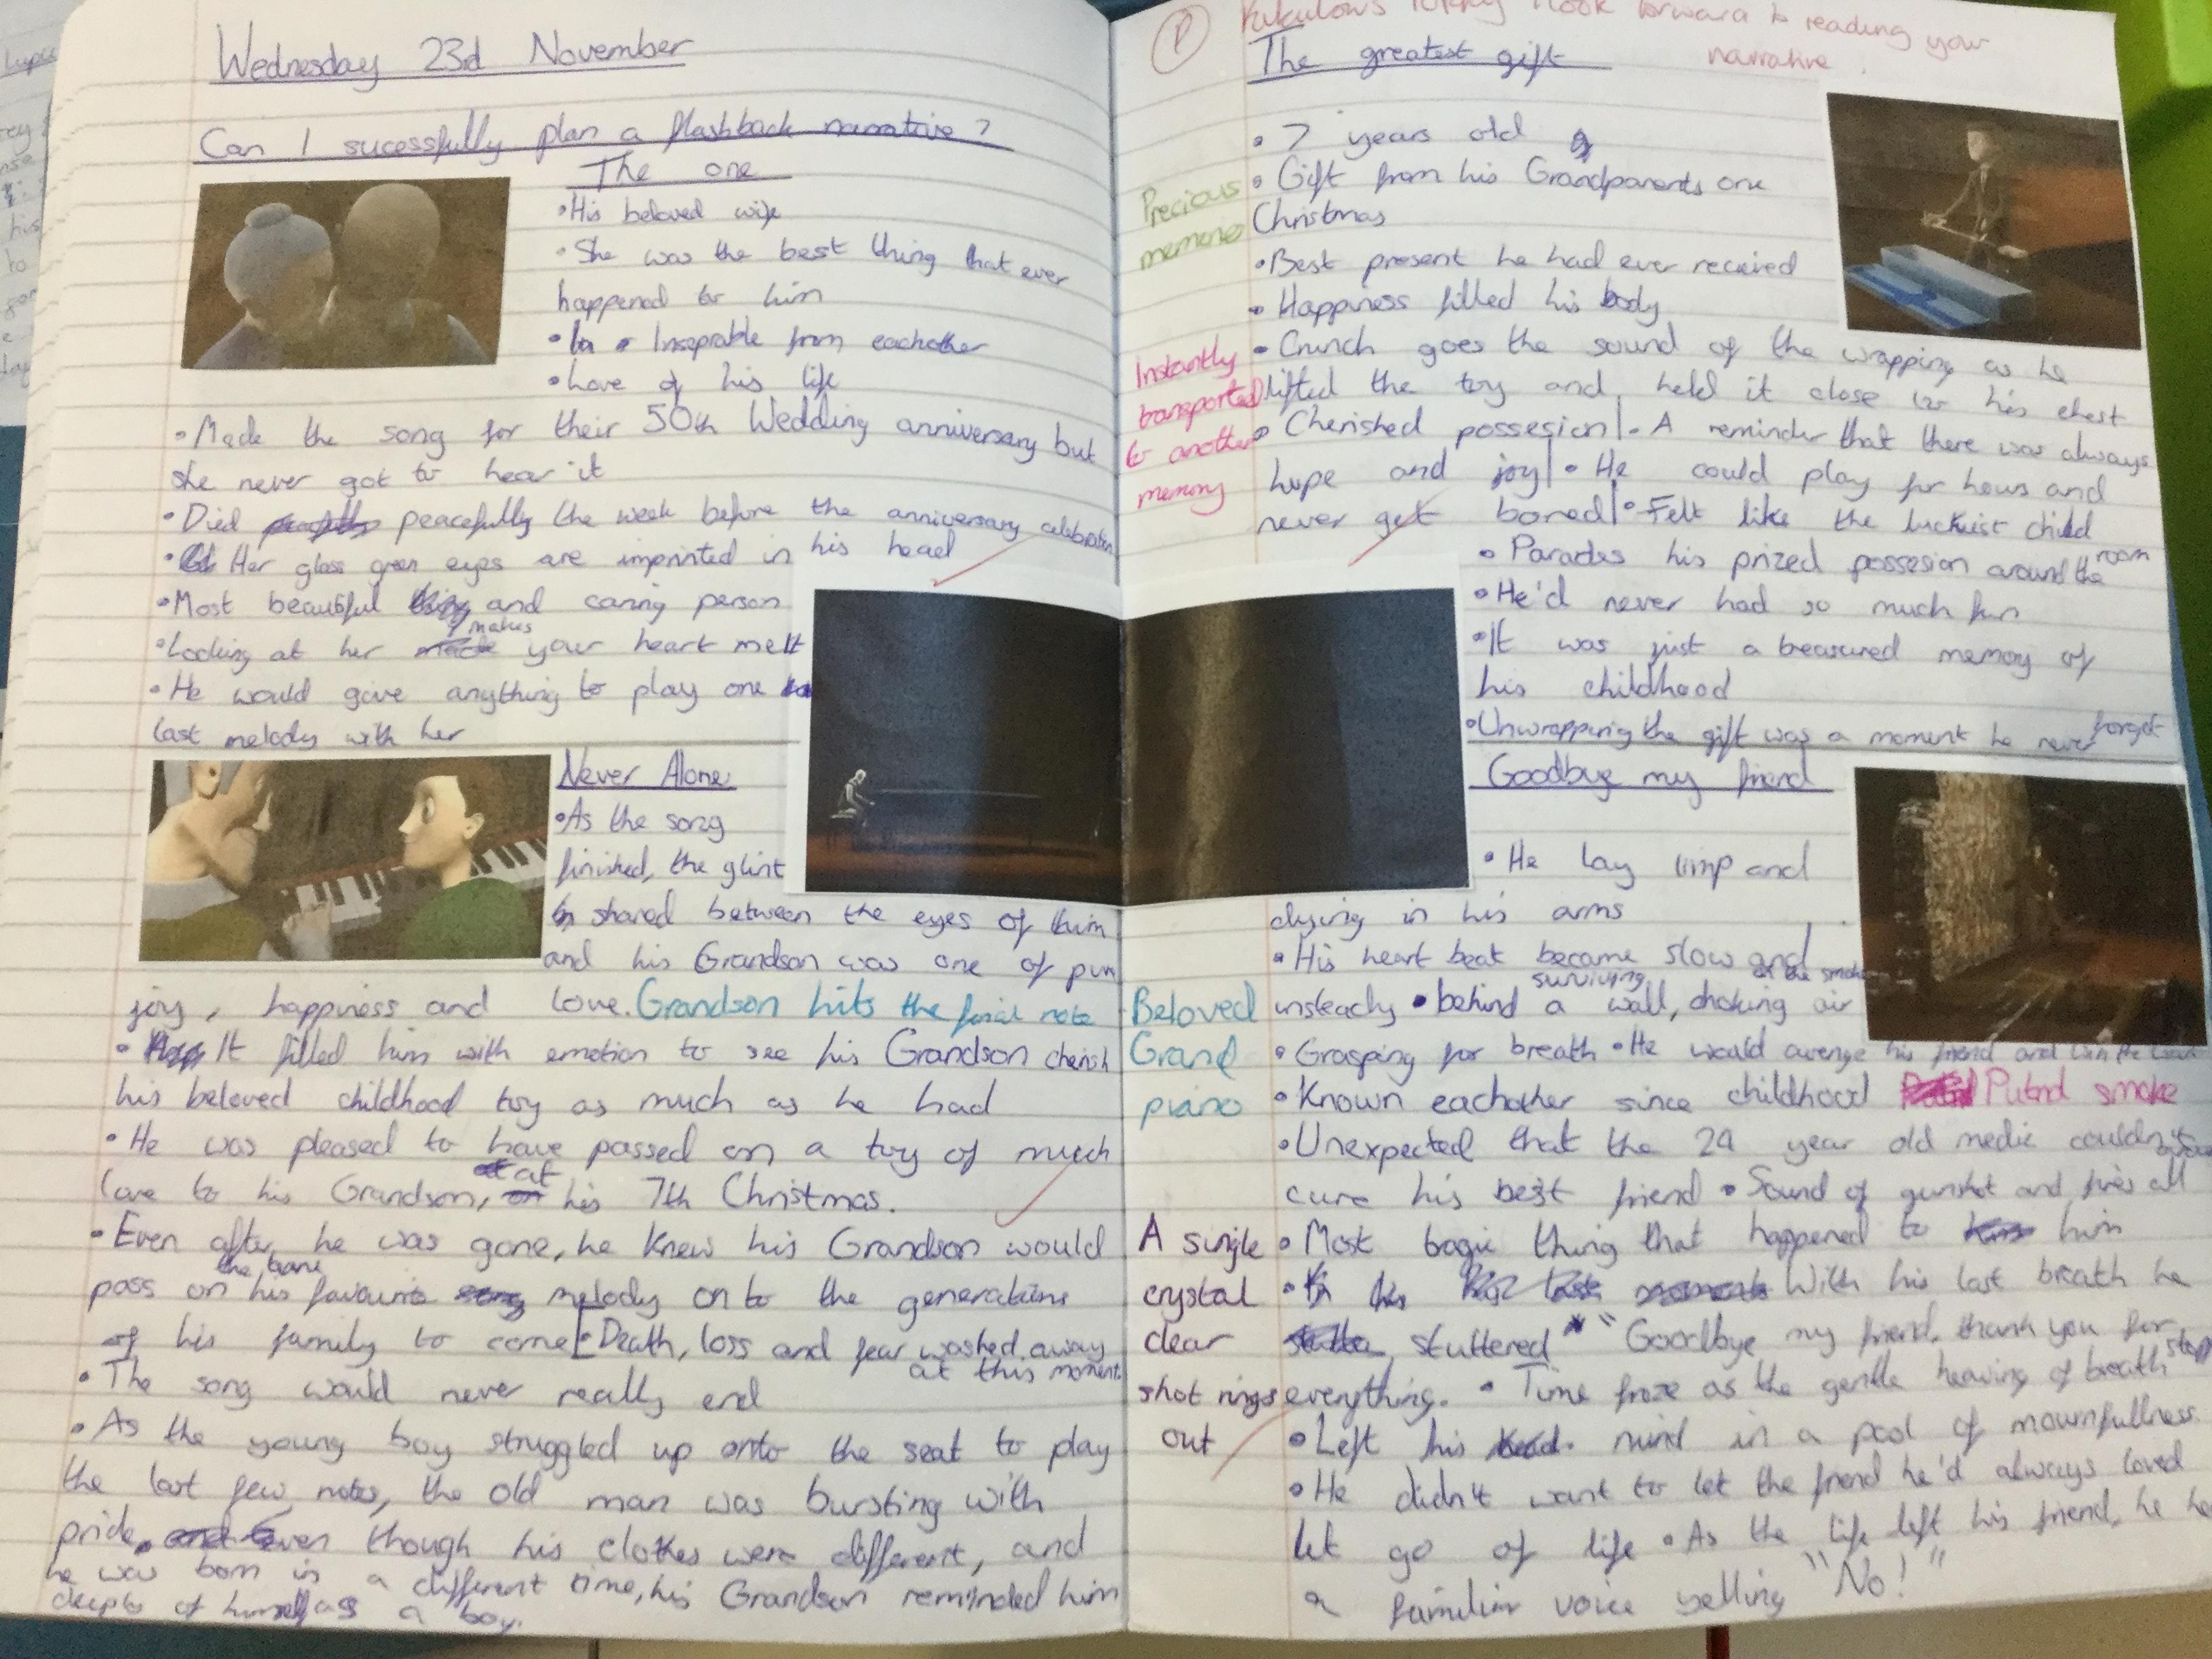 Wednesday 23rd November
Can I sucessfully plan a flashback narrative?
The one
•His beloved wife
•She was the best thing that ever
happened to him
• Inseprable from eachother
•Love of his life
•Made the song for their 50th Wedding anniversary but
she never got to hear it
•Died peacefully the week before the anniversary celebration
• Her glass green eyes are imprinted in his head
•Most beautiful and caring person
•Looking at her makes your heart melt
•He would give anything to play one
last melody with her
Never Alone
•As the song
finished, the glint
shared between the eyes of him
and his Grandson was one of pure
joy, happiness and love. Grandson hits the final note
• It filled him with emotion to see his Grandson cherish
his beloved childhood toy as much as he had
•He was pleased to have passed on a toy of much
love to his Grandson, at his 7th Christmas.
•Even after he was gone, he knew his Grandson would
pass on his favourite melody on to the generations
of his family to come[•Death, loss and fear washed away
at this moment
•The song would never really end
•As the young boy struggled up onto the seat to play
the last few notes, the old man was bursting with
pride. Even though his clothes were different, and
he was born in a different time, his Grandson reminded him
deeply of himself as a boy.
P
I look forward to reading your
narrative.
The greatest gift
• 7 years old
•Gift from his Grandparents one
Christmas
Precious
memories
•Best present he had ever received
• Happiness filled his body
•Crunch goes the sound of the wrapping as he
lifted the toy and held it close to his chest
Instantly
transported
to another
memory
• Cherished possesion|•A reminder that there was always
hope and joy|•He could play for hours and
never get bored|•Felt like the luckiest child
• Parades his prized possesion around the room
•He'd never had so much fun
•It was just a treasured memory of
his childhood
•Unwrapping the gift was a moment he never forgot
Goodbye my friend
•He lay limp and
dying in his arms
•His heart beat became slow and
unsteady •behind a surviving wall, choking air
Beloved
Grand
piano
•Grasping for breath •He would avenge his friend and win the
•Known eachother since childhood Putrid smoke
•Unexpected that the 24 year old medic couldn't
cure his best friend •Sound of gunshot and fires all
A single
crystal
clear
shot rings
out
•Most tragic thing that happened to him
• With his last breath he
stuttered "Goodbye my friend, thank you for
everything. •Time froze as the gentle heaving of breath stop
•Left his mind in a pool of mournfullness.
•He didn't want to let the friend he'd always loved
let go of life •As the life left his friend, he he
a familiar voice yelling "No!"